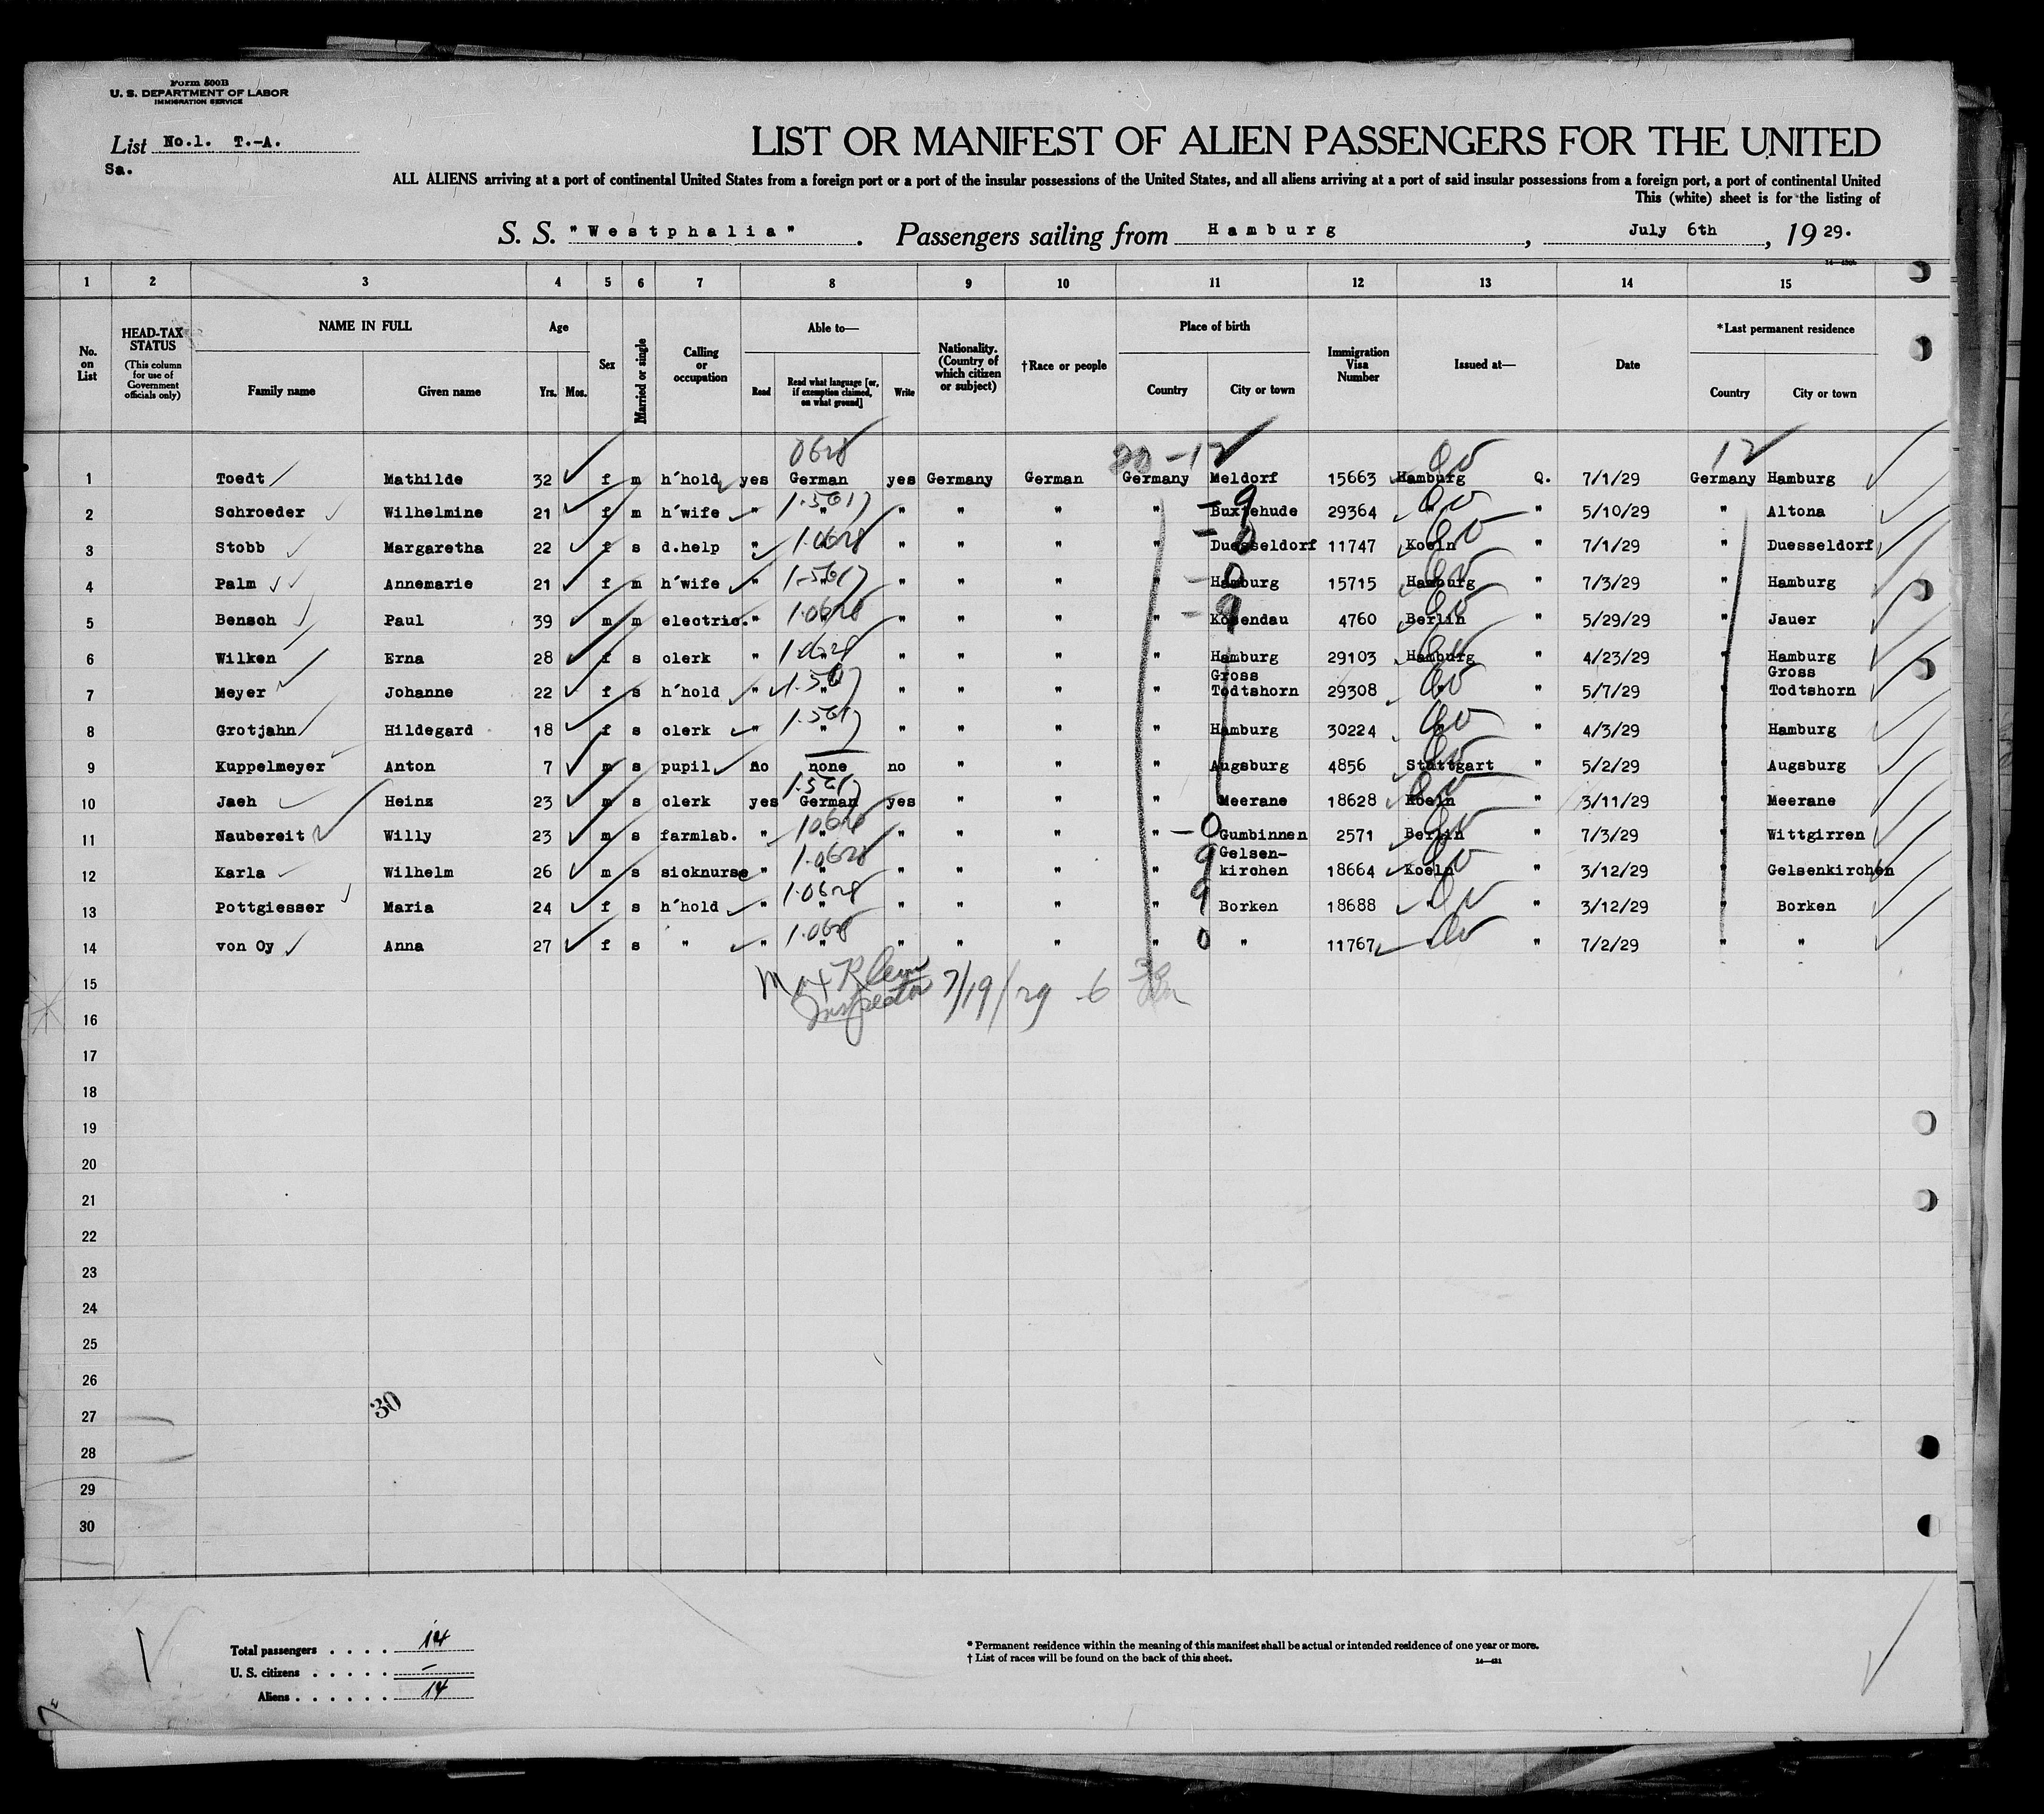 Form 500B
U. S. DEPARTMENT OF LABOR
IMMIGRATION SERVICE
List No.1. T.-A.
Sa.
LIST OR MANIFEST OF ALIEN PASSENGERS FOR THE UNITED
ALL ALIENS arriving at a port of continental United States from a foreign port or a port of the insular possessions of the United States, and all aliens arriving at a port of said insular possessions from a foreign port, a port of continental United
This (white) sheet is for the listing of
S. S. "Westphalia". Passengers sailing from Hamburg, July 6th, 19 29.
1 2 3 4 5 6 7 8 9 10 11 12 13 14 15
No. on List
HEAD-TAX STATUS (This column for use of Government officials only)
NAME IN FULL Family name Given name
Age Yrs. Mos.
Sex
Married or single
Calling or occupation
Able to— Read Read what language [or, if exemption claimed, on what ground] Write
Nationality. (Country of which citizen or subject)
†Race or people
Place of birth Country City or town
Immigration Visa Number
Issued at—
Date
*Last permanent residence Country City or town
0628 20-12 12
1 Toedt Mathilde 32 f m h'hold yes German yes Germany German Germany Meldorf 15663 Hamburg Q. 7/1/29 Germany Hamburg
2 Schroeder Wilhelmine 21 f m h'wife " " " " " " Buxtehude 29364 " " 5/10/29 " Altona
3 Stobb Margaretha 22 f s d.help " " " " " " Duesseldorf 11747 Koeln " 7/1/29 " Duesseldorf
4 Palm Annemarie 21 f m h'wife " " " " " " Hamburg 15715 Hamburg " 7/3/29 " Hamburg
5 Bensch Paul 39 m m electric. " " " " " " Kosendau 4760 Berlin " 5/29/29 " Jauer
6 Wilken Erna 28 f s clerk " " " " " " Hamburg 29103 Hamburg " 4/23/29 " Hamburg
7 Meyer Johanne 22 f s h'hold " " " " " " Gross Todtshorn 29308 " " 5/7/29 " Gross Todtshorn
8 Grotjahn Hildegard 18 f s clerk " " " " " " Hamburg 30224 " " 4/3/29 " Hamburg
9 Kuppelmeyer Anton 7 m s pupil no none no " " " Augsburg 4856 Stuttgart " 5/2/29 " Augsburg
10 Jaeh Heinz 23 m s clerk yes German yes " " " Meerane 18628 Koeln " 3/11/29 " Meerane
11 Naubereit Willy 23 m s farmlab. " " " " " " Gumbinnen 2571 Berlin " 7/3/29 " Wittgirren
12 Karla Wilhelm 26 m s sicknurse " " " " " " Gelsen-kirchen 18664 Koeln " 3/12/29 " Gelsenkirchen
13 Pottgiesser Maria 24 f s h'hold " " " " " " Borken 18688 " " 3/12/29 " Borken
14 von Oy Anna 27 f s " " " " " " " " 11767 " " 7/2/29 " "
15
Inspector 7/19/29
16
17
18
19
20
21
22
23
24
25
26
27
30
28
29
30
Total passengers . . . . 14
U. S. citizens . . . . . –
Aliens . . . . . . 14
* Permanent residence within the meaning of this manifest shall be actual or intended residence of one year or more.
† List of races will be found on the back of this sheet.
14—431